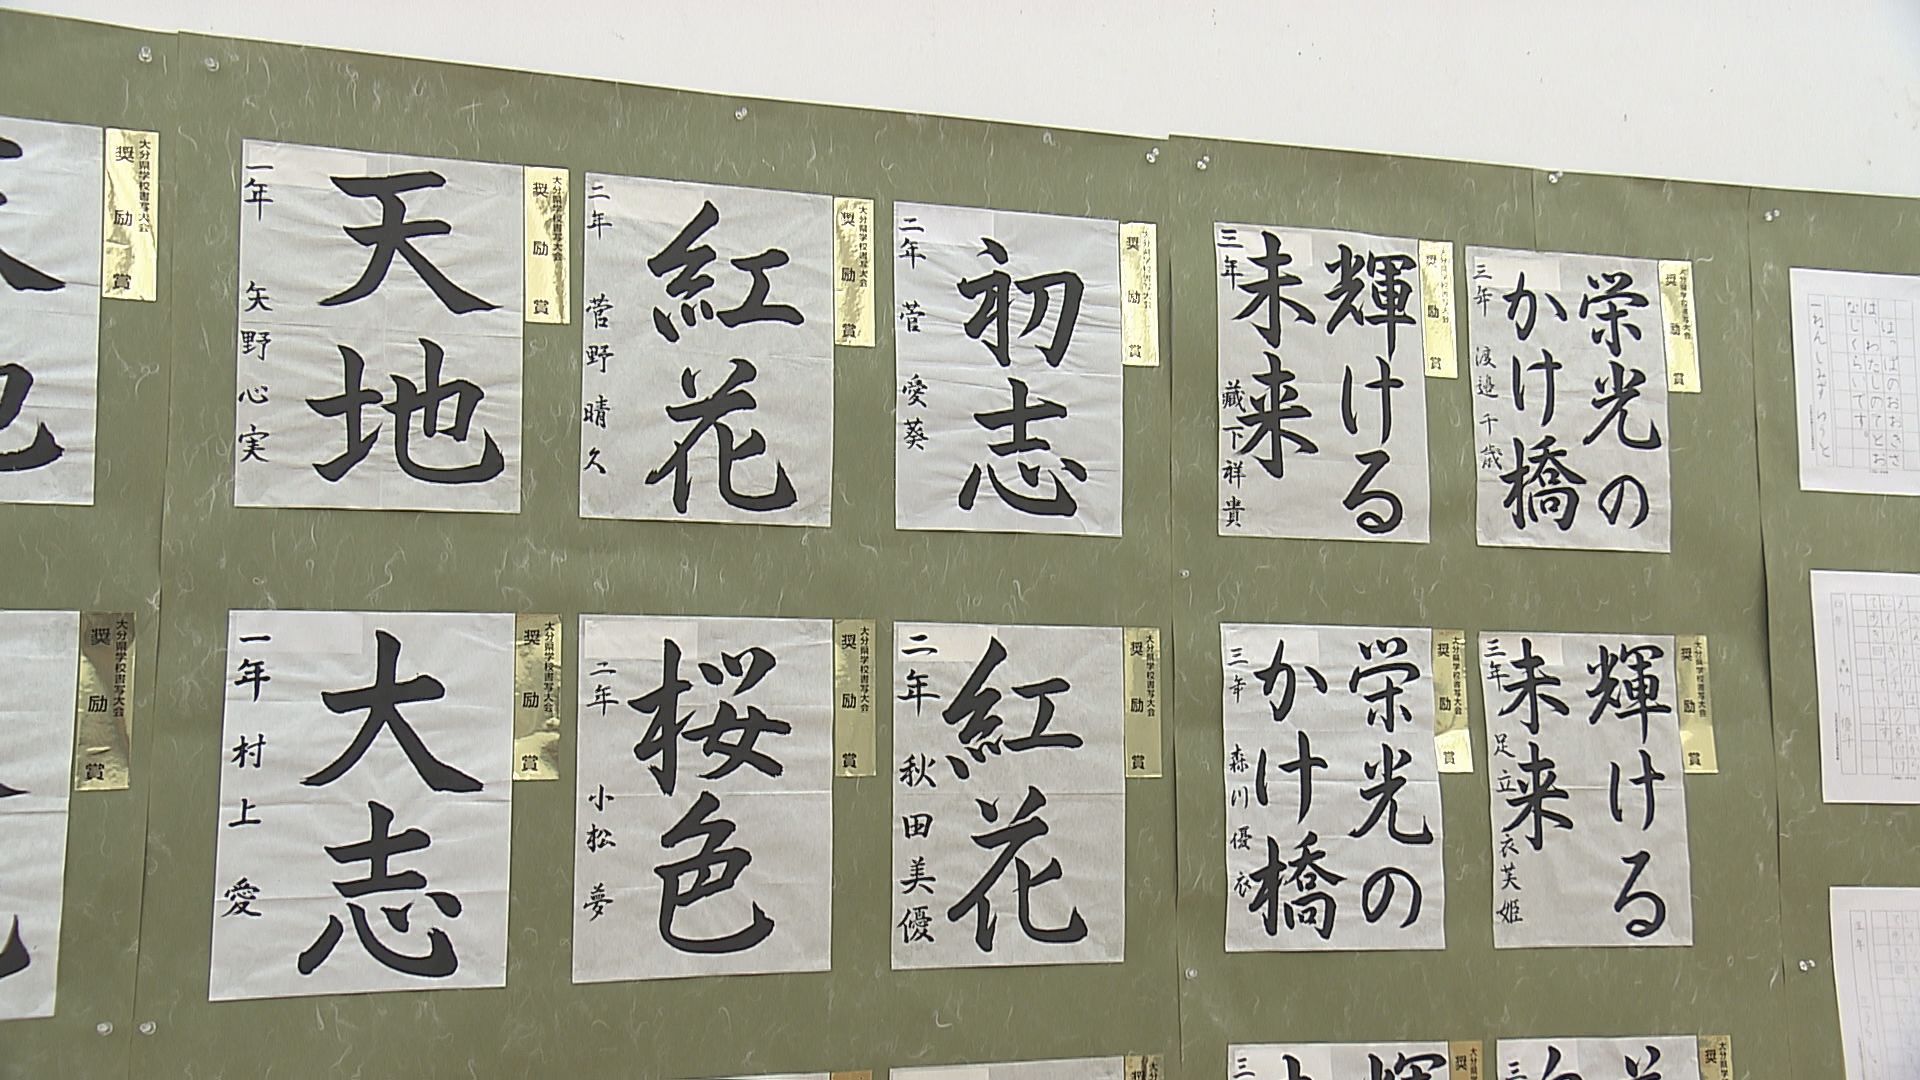 大分県学校書写大会
奨励賞
天地
一年 矢野心実
大分県学校書写大会
奨励賞
紅花
二年 菅野晴久
大分県学校書写大会
奨励賞
初志
二年 菅 愛葵
大分県学校書写大会
奨励賞
輝ける
未来
三年 藏下祥貴
大分県学校書写大会
奨励賞
栄光の
かけ橋
三年 渡邉千歳
大分県学校書写大会
奨励賞
はっぱのおおきさ
は、わたしのてとお
なじくらいです。
大分県学校書写大会
奨励賞
大志
一年 村上 愛
大分県学校書写大会
奨励賞
桜色
二年 小松 夢
大分県学校書写大会
奨励賞
紅花
二年 秋田美優
大分県学校書写大会
奨励賞
栄光の
かけ橋
三年 森川優衣
大分県学校書写大会
奨励賞
輝ける
未来
三年 足立衣芙姫
大分県学校書写大会
奨励賞